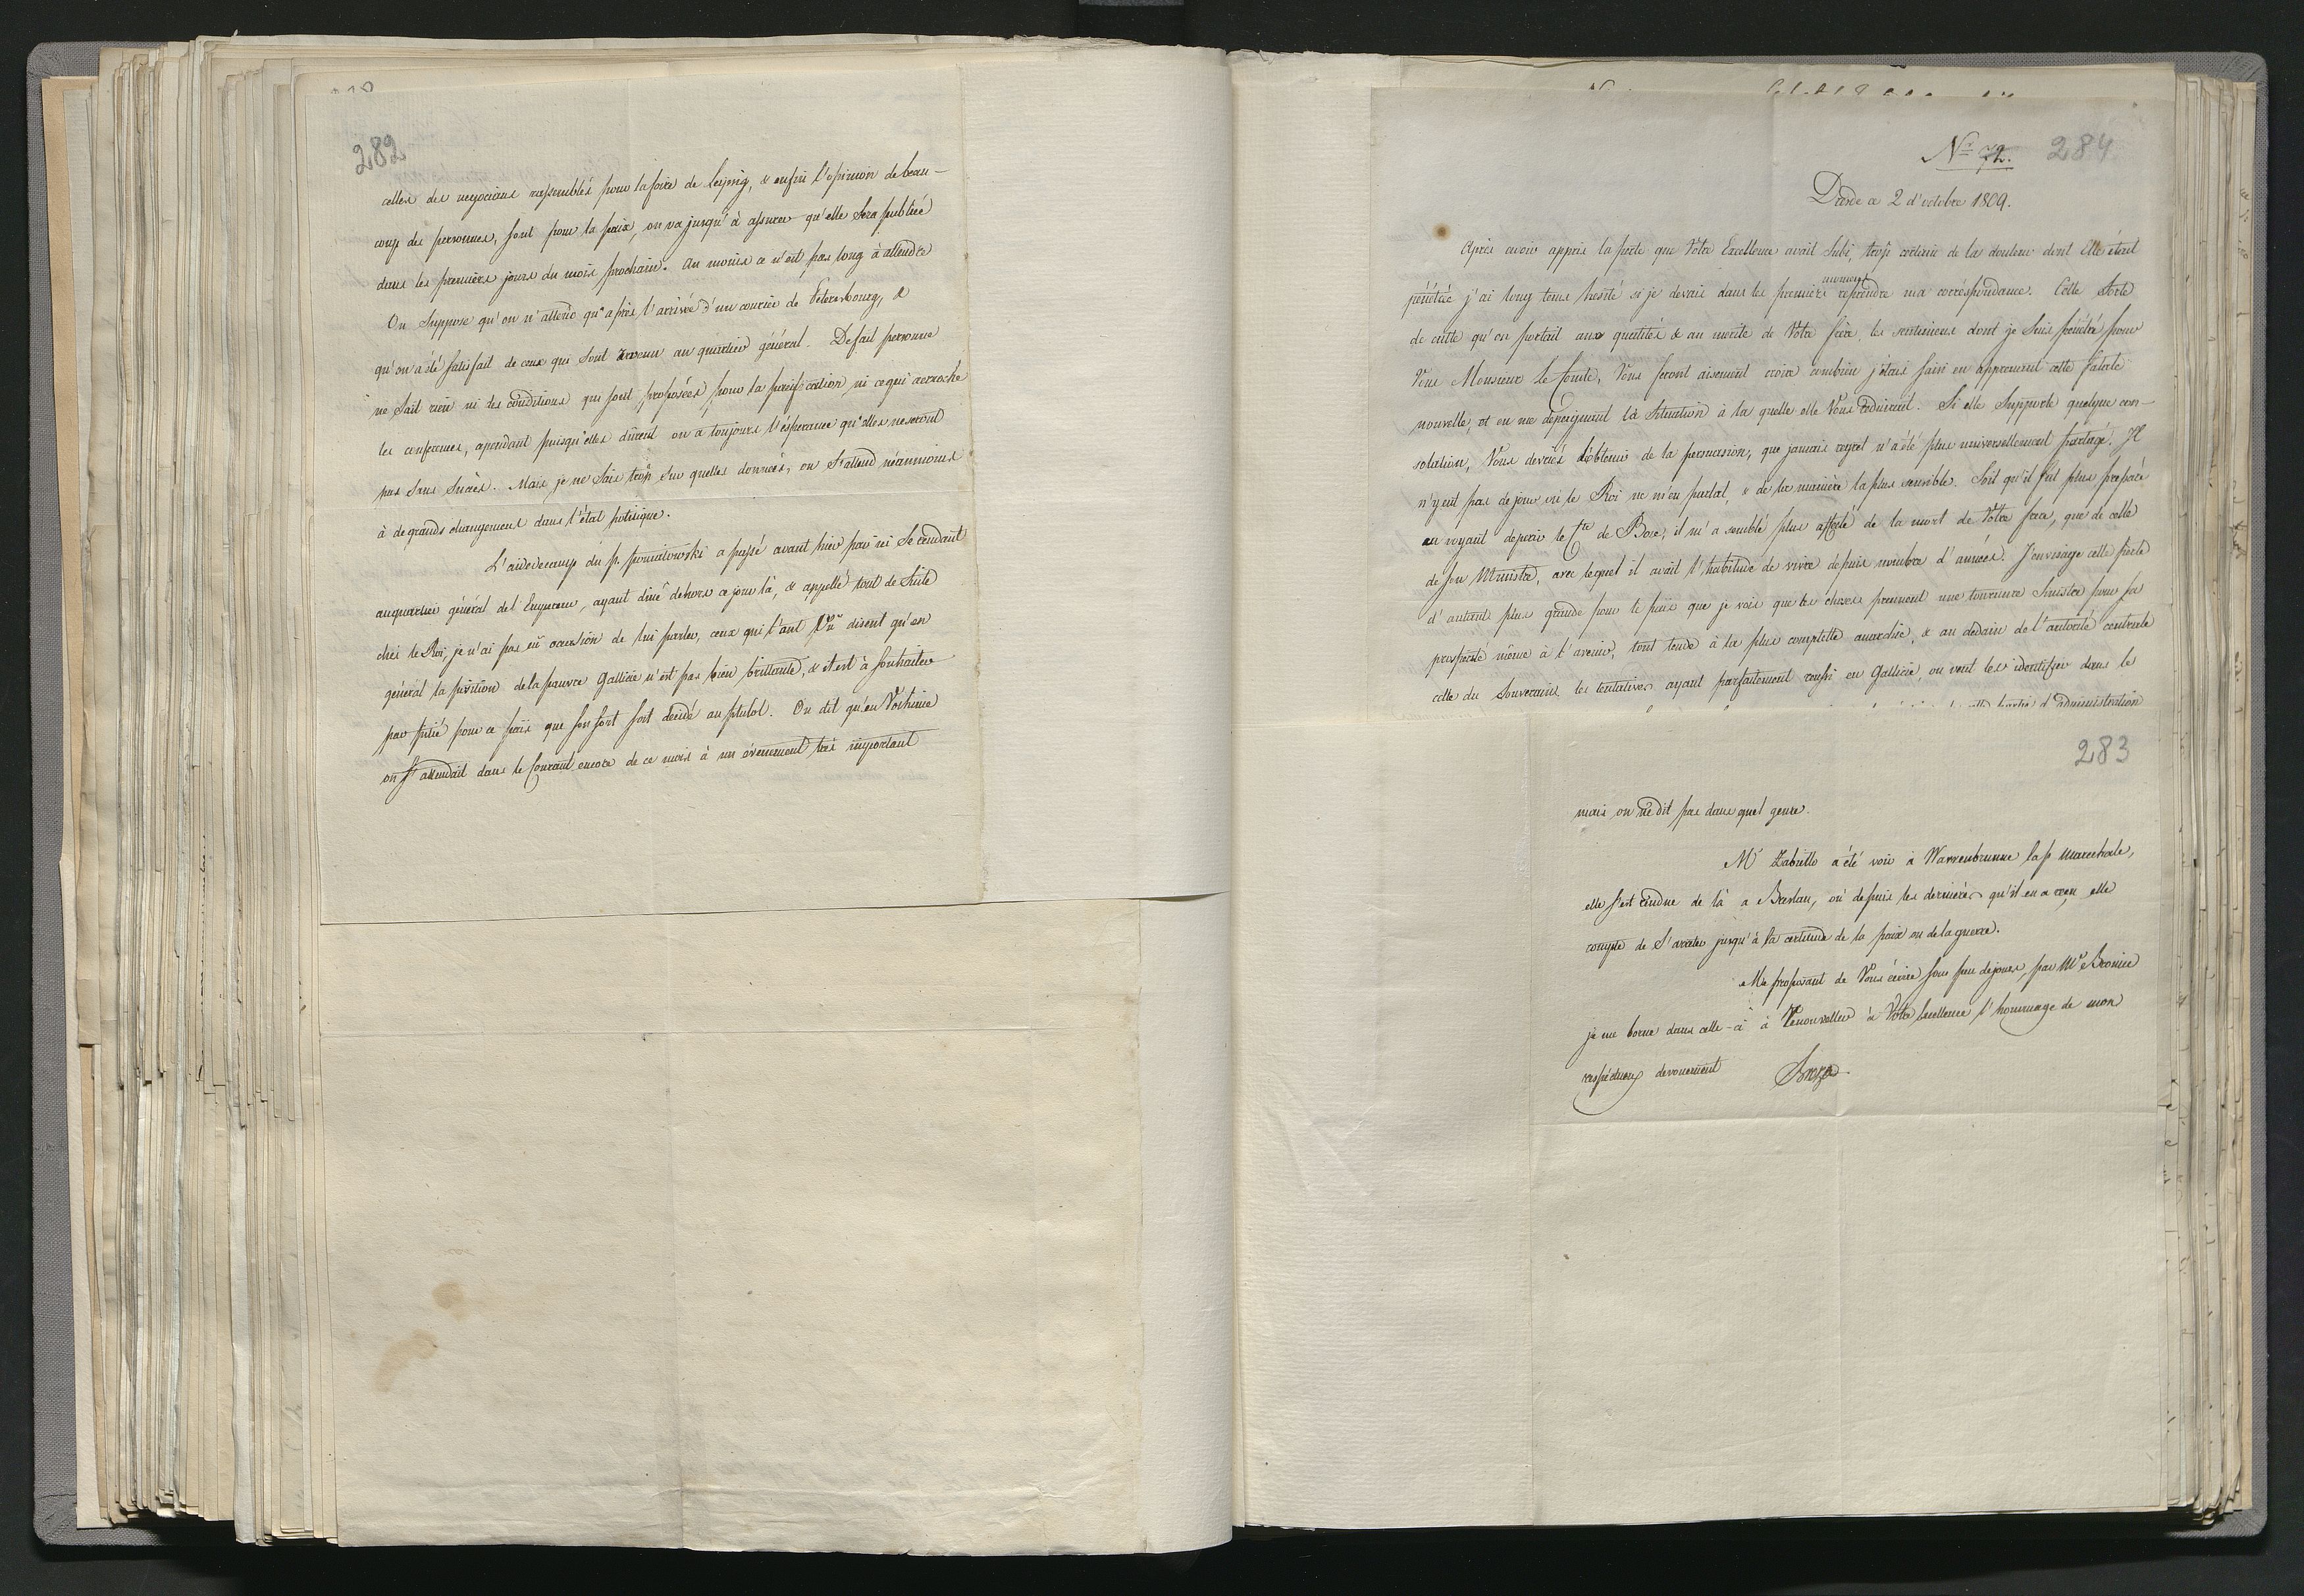 282
celles des negocians rassemblés pour la foire de Leipzig, & enfin l'opinion de beau-
coup des personnes, sont pour la paix, on va jusqu'à assurer qu'elle sera publiée
dans les premiers jours du mois prochain. Au moins ce n'est pas long à attendre
On suppose qu'on n'attend qu'après l'arrivée d'un courier de Petersbourg, &
qu'on a été satisfait de ceux qui sont au quartier général. De fait personne
ne sait rien ni des conditions qui sont proposées pour la pacification ni ce qui accroche
les conferences, cependant puisqu'elles durent on a toujours l'ésperance qu'elles ne seront
pas sans succès. Mais je ne sais trop sur quelles données, on s'attend néanmoins
à de grands changemens dans l'état politique.
L'aidedecamp du p. Poniatowski a passé avant hier par ici se rendant
au quartier général de l'Empereur, ayant diné dehors ce jour là, & appellé tout de suite
chés le Roi, je n'ai pas eû occasion de lui parler, ceux qui l'ont vu disent qu'en
général la position de la pauvre Gallicie n'est pas bien brillante, & il est à souhaiter
par pitié pour ce païs que son sort soit decidé au plutot. On dit qu'en Volhinie
on s'attendait dans le courant encore de ce mois à un évenement très important
Nº 72. 284
Dresde ce 2 d'octobre 1809.
Après avoir appris la perte que Votre Excellence avait subi, trop certain de la douleur dont Elle était
pénétrée j'ai long tems hesité si je devais dans les premiers momens reprendre ma corréspondance. Cette sorte
de culte qu'on portait aux qualités & au merite de Votre frère, les sentimens dont je suis pénétré pour
Vous Monsieur le Comte, Vous feront aisement croire combien j'étais saisi en apprenant cette fatale
nouvelle, et en me dépeignant la situation à la quelle elle Vous reduirait. Si elle supporte quelque con-
solation, Vous devriés l'obtenir de la persuasion, que jamais regret n'a été plus universellement partagé. Il
n'y eut pas de jour où le Roi ne m'en parlat, & de la manière la plus sensible. Soit qu'il fut plus preparé
en voyant deperir le Cte de Bose, il m'a semblé plus affecté de la mort de Votre frere, que de celle
de son Ministre, avec lequel il avait l'habitude de vivre dépuis nombre d'années. J'envisage cette perte
d'autant plus grande pour le païs que je vois que les choses prennent une tournure sinistre pour sa
prosperité même à l'avenir, tout tend à la plus complette anarchie, & au dedain de l'autorité centrale
celle du Souverain, les tentatives ayant parfaitement reussi en Gallicie, on veut les identifier dans le
d'administration
283
mais on ne dit pas dans quel genre.
Mr Zabiello a été voir à Warmbrunne la p. Marechale,
elle s'est rendue de là a Breslau, où depuis les dernières qu'il en a reçu elle
compte de s'arreter jusqu'à la certitude de la paix ou de la guerre.
Me proposant de Vous écrire sous peu de jours, par Mr Bronice
je me borne dans celle-ci à renouveller à Votre Excellence l'hommage de mon
respectueux devouement Breza